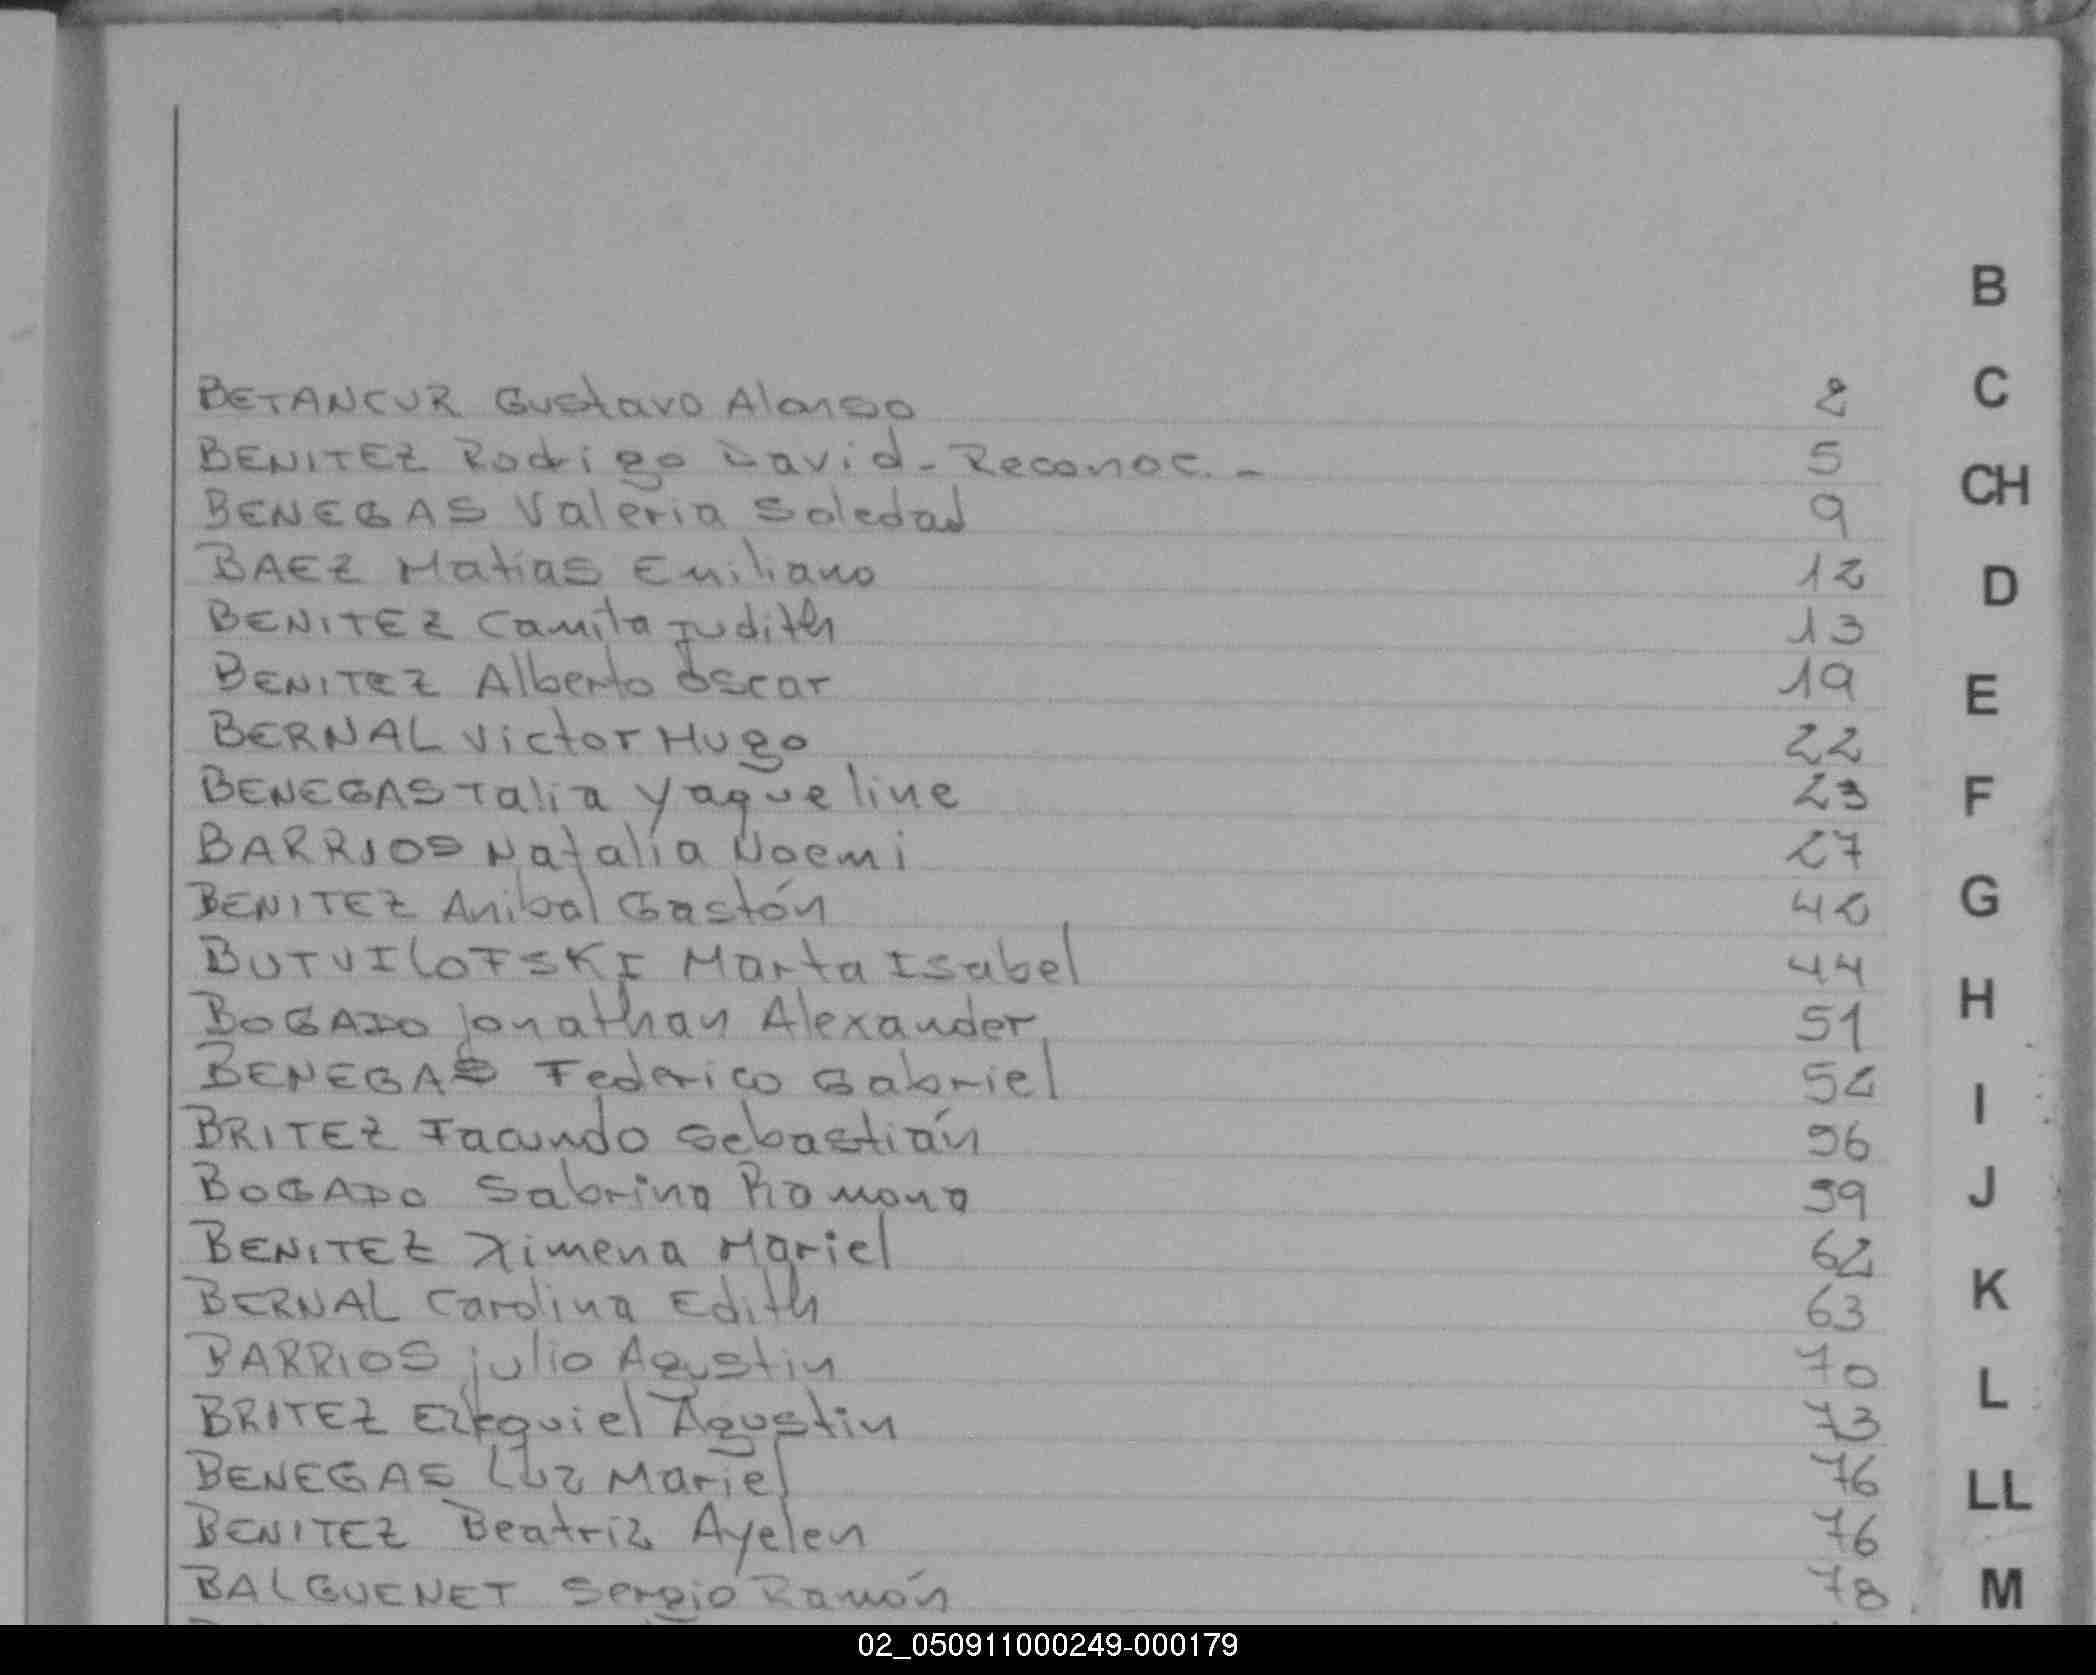 BETANCUR Gustavo Alonso 2
BENITEZ Rodrigo David - Reconoc. - 5
BENEGAS Valeria Soledad 9
BAEZ Matias Emiliano 12
BENITEZ Camila Judith 13
BENITEZ Alberto Oscar 19
BERNAL Victor Hugo 22
BENEGAS Talia Yaqueline 23
BARRIOS Natalia Noemi 27
BENITEZ Anibal Gastón
BUTVILOFSKI Marta Isabel 44
BOGADO Jonathan Alexander 51
BENEGAS Federico Gabriel 52
BRITEZ Facundo Sebastián 56
BOGADO Sabrina Ramona 59
BENITEZ Ximena Mariel 62
BERNAL Carolina Edith 63
BARRIOS Julio Agustin 70
BRITEZ Ezequiel Agustin 73
BENEGAS Luz Mariel 76
BENITEZ Beatriz Ayelen 76
BALGUENET Sergio Ramón 78
B
C
CH
D
E
F
G
H
I
J
K
L
LL
M
02_050911000249-000179